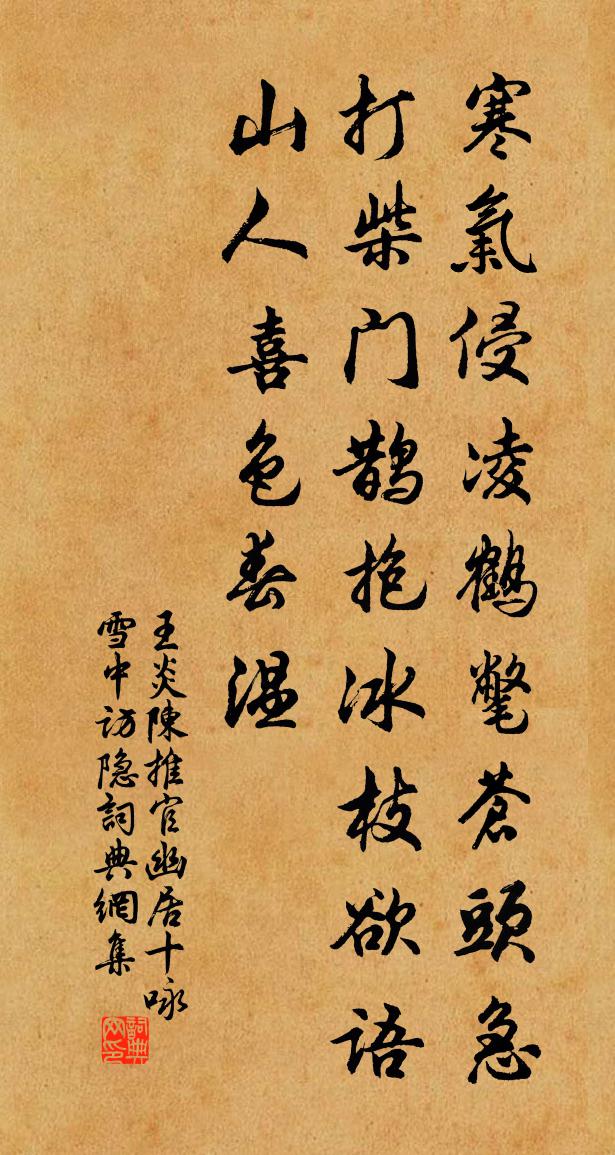 寒氣侵凌鶴氅蒼頭急
打柴门鵲抱冰枝欲語
山人喜色春温
王炎陳推官幽居十咏
雪中访隐詞典網集
詞典网印